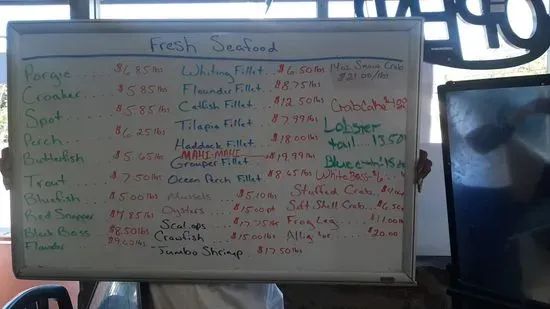 OPEN
Fresh Seafood
Porgie .... $6.85 lbs
Croaker .... $5.85 lbs
Spot .... $5.85 lbs
Perch .... $6.25 lbs
Butterfish .... $5.65 lbs
Trout .... $7.50 lbs
Bluefish .... $5.00 lbs
Red Snapper .... $7.85 lbs
Black Bass .... $8.50 lbs
Flounder .... lbs
Whiting Fillet .. $6.50 lbs
Flounder Fillet ... $8.75 lbs
Catfish Fillet ... $12.50 lbs
Tilapia Fillet ... $7.99 lbs
Haddock Fillet .... $18.00 lbs
MAHI-MAHI
Grouper Fillet .... $19.99 lbs
Ocean Perch Fillet .. $8.65 lbs
Mussels .... $5.10 lbs
Oysters .... $15.00 pt
Scallops .... lbs
Crawfish .... $15.00 lbs
Jumbo Shrimp .... $17.50 lbs
Snow Crab
$21.00/lbs
Crab Cake
Lobster
tail ... 13.50
Blue crab
White Bass
Stuffed Crab
Soft Shell Crab .. $6.50
Frog Leg .... $11.00
.... $20.00